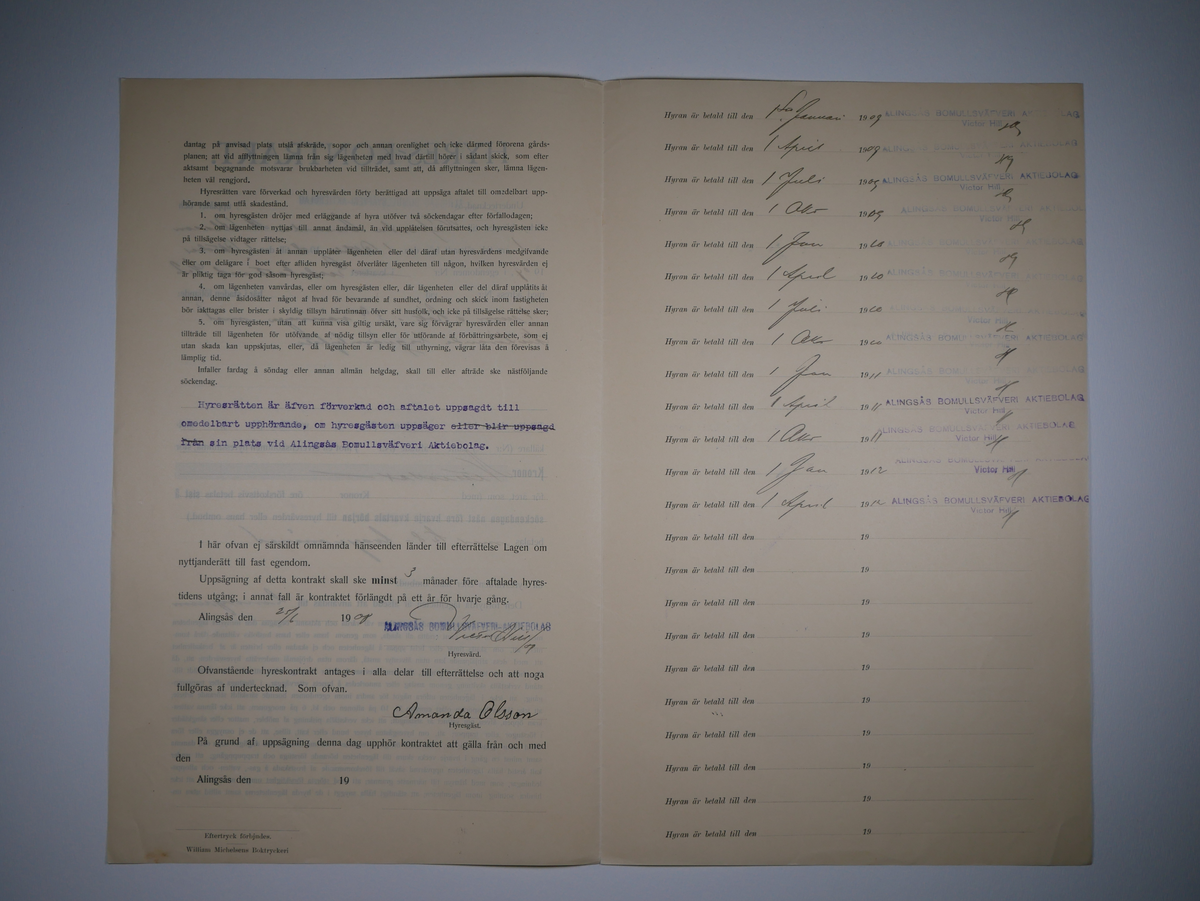 dantag på anvisad plats utslå afskräde, sopor och annan orenlighet och icke därmed förorena gårds-
planen; att vid afflyttningen lämna från sig lägenheten med hvad därtill hörer i sådant skick, som efter
aktsamt begagnande motsvarar brukbarheten vid tillträdet, samt att, då afflyttningen sker, lämna lägen-
heten väl rengjord.
Hyresrätten vare förverkad och hyresvärden förty berättigad att uppsäga aftalet till omedelbart upp-
hörande samt utfå skadestånd.
1. om hyresgästen dröjer med erläggande af hyra utöfver två söckendagar efter förfallodagen;
2. om lägenheten nyttjas till annat ändamål, än vid upplåtelsen förutsattes, och hyresgästen icke
på tillsägelse vidtager rättelse;
3. om hyresgästen åt annan upplåter lägenheten eller del däraf utan hyresvärdens medgifvande
eller om delägare i boet efter afliden hyresgäst öfverlåter lägenheten till någon, hvilken hyresvärden ej
är pliktig taga för god såsom hyresgäst;
4. om lägenheten vanvårdas, eller om hyresgästen eller, där lägenheten eller del däraf upplåtits åt
annan, denne åsidosätter något af hvad för bevarande af sundhet, ordning och skick inom fastigheten
bör iakttagas eller brister i skyldig tillsyn härutinnan öfver sitt husfolk, och icke på tillsägelse rättelse sker;
5. om hyresgästen, utan att kunna visa giltig ursäkt, vare sig förvägrar hyresvärden eller annan
tillträde till lägenheten för utöfvande af nödig tillsyn eller för utförande af förbättringsarbete, som ej
utan skada kan uppskjutas, eller, då lägenheten är ledig till uthyrning, vägrar låta den förevisas å
lämplig tid.
Infaller fardag å söndag eller annan allmän helgdag, skall till eller afträde ske nästföljande
söckendag.
Hyresrätten är äfven förverkad och aftalet uppsagdt till
omedelbart upphörande, om hyresgästen uppsäger eller blir uppsagd
från sin plats vid Alingsås Bomullsväfveri Aktiebolag.
I här ofvan ej särskildt omnämnda hänseenden länder till efterrättelse Lagen om
nyttjanderätt till fast egendom.
Uppsägning af detta kontrakt skall ske minst 3 månader före aftalade hyres-
tidens utgång; i annat fall är kontraktet förlängdt på ett år för hvarje gång.
Alingsås den 190
ALINGSÅS BOMULLSVÄFVERI-AKTIEBOLAG
Victor Hill
Hyresvärd.
Ofvanstående hyreskontrakt antages i alla delar till efterrättelse och att noga
fullgöras af undertecknad. Som ofvan.
Amanda Olsson
Hyresgäst.
På grund af uppsägning denna dag upphör kontraktet att gälla från och med
den
Alingsås den 19
Eftertryck förbjudes.
William Michelsens Boktryckeri
Hyran är betald till den 1sta Januari 1909 ALINGSÅS BOMULLSVÄFVERI AKTIEBOLAG
Victor Hill
Hyran är betald till den 1 April 1909
Hyran är betald till den 1 Juli 1909 ALINGSÅS BOMULLSVÄFVERI AKTIEBOLAG
Victor Hill
Hyran är betald till den 1 Okt 1909
Hyran är betald till den 1 Jan 1910
Hyran är betald till den 1 April 1910
Hyran är betald till den 1 Juli 1910
Hyran är betald till den 1 Okt 1910 ALINGSÅS BOMULLSVÄFVERI AKTIEBOLAG
Hyran är betald till den 1 Jan 1911
Hyran är betald till den 1 April 1911 ALINGSÅS BOMULLSVÄFVERI AKTIEBOLAG
Victor Hill
Hyran är betald till den 1 Okt 1911 ALINGSÅS BOMULLSVÄFVERI AKTIEBOLAG
Victor Hill
Hyran är betald till den 1 Jan 1912
Victor Hill
Hyran är betald till den 1 April 1912 ALINGSÅS BOMULLSVÄFVERI AKTIEBOLAG
Victor Hill
Hyran är betald till den 19
Hyran är betald till den 19
Hyran är betald till den 19
Hyran är betald till den 19
Hyran är betald till den 19
Hyran är betald till den 19
Hyran är betald till den 19
Hyran är betald till den 19
Hyran är betald till den 19
Hyran är betald till den 19